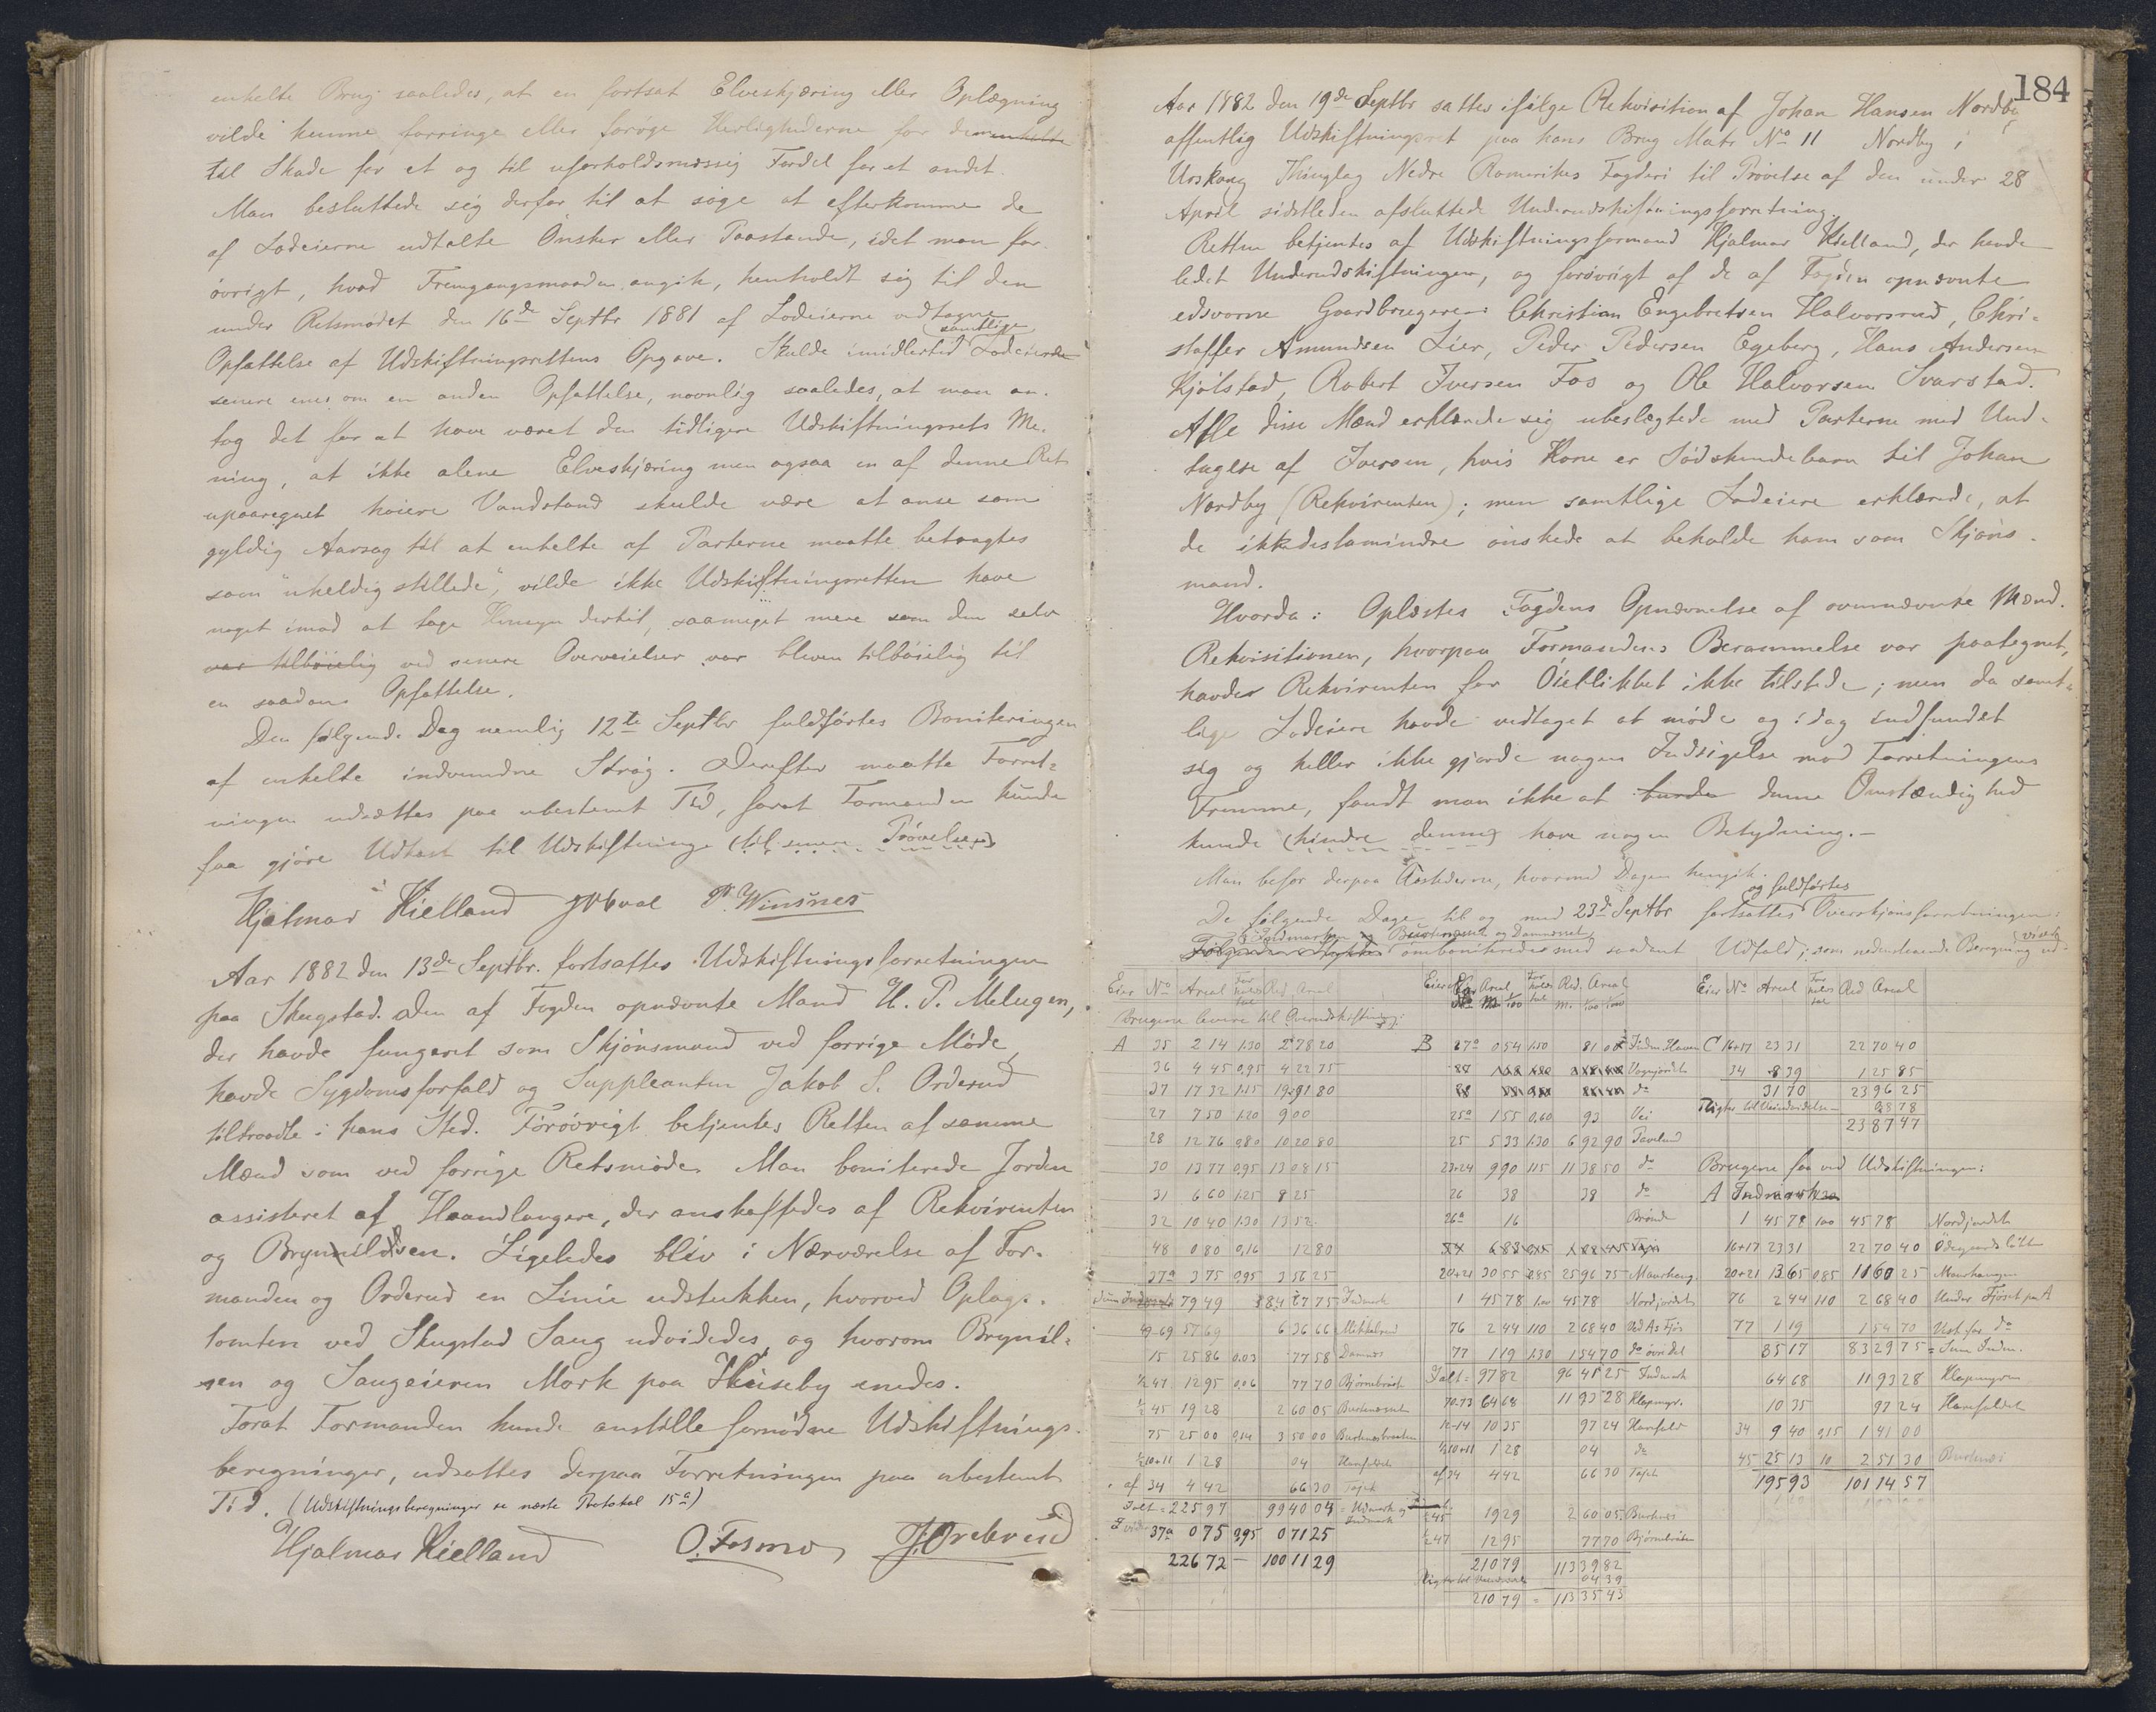 enkelte Brug saaledes, at en fortsat Elveskjæring eller Oplægning
vilde kunne forringe eller forøge Herlighederne for dem enkelte
til Skade for et og til uforholdsmæssig Fordel for et andet.
Man besluttede sig derfor til at søge at efterkomme de
af Lodeierne udtalte Ønsker eller Paastande, idet man for-
øvrigt, hvad Fremgangsmaaden angik, henholdt sig til den
under Retsmødet den 16de Septbr 1881 af Lodeierne vedtagne
Opfattelse af Udskiftningsrettens Opgave. Skulde imidlertid samtlige Lodeierne
senere enes om en anden Opfattelse, navnlig saaledes, at man an-
tog det for at have været den tidligere Udskiftningsrets Me-
ning, at ikke alene Elveskjæring men ogsaa en af denne Ret
upaaregnet høiere Vandstand skulde være at anse som
gyldig Aarsag til at enkelte af Parterne maatte betragtes
som "uheldig stillede", vilde ikke Udskiftningsretten have
noget imod at tage Hensyn dertil, saameget mere som den selv
var tilbøielig ved senere Overveielser var bleven tilbøielig til
en saadan Opfattelse.
Den følgende Dag nemlig 12te Septbr fuldførtes Boniteringen
af enkelte indvundne Strøg. Derefter maatte Forret-
ningen udsættes paa ubestemt Tid, forat Formanden kunde
faa gjøre Udkast til Udskiftninge (til senere Prøvelse)
Hjalmar Kielland P. Winsnes
Aar 1882 den 13de Septbr. fortsattes Udskiftningsforretningen
paa Skugstad. Den af Fogden opnævnte Mand H. P. Melugen,
der havde fungeret som Skjønsmand ved forrige Møde,
havde Sygdomsforfald og Suppleanten Jakob S. Orderud
tiltraadte i hans Sted. Forøvrigt betjentes Retten af samme
Mænd som ved forrige Retsmøde. Man boniterede Jorden
assisteret af Haandlangere, der anskaffedes af Rekvirenten
og Brynildsen. Ligeledes blev i Nærværelse af For-
manden og Orderud en Linie udstukken, hvorved Oplags-
tomten ved Skugstad Saug udvidedes og hvorom Brynil-
sen og Saugeieren Mork paa Huseby enedes.
Forat Formanden kunde anstille fornødne Udskiftnings-
beregninger, udsattes derpaa Forretningen paa ubestemt
Tid. (Udskiftningsberegninger se næste Protokol 15a)
Hjalmar Kielland O. Fosmo J. Orderud
184
Aar 1882 den 19de Septbr sattes ifølge Rekvisition af Johan Hansen Nordby
offentlig Udskiftningsret paa hans Brug Matr No 11 Nordby i
Urskoug Thinglag Nedre Romerikes Fogderi til Prøvelse af den under 28
April sidstleden afsluttede Underudskiftningsforretning.
Retten betjentes af Udskiftningsformand Hjalmar Kielland, der havde
ledet Underudskiftningen, og forøvrigt af de af Fogden opnævnte
edsvorne Gaardbrugere: Christian Engebretsen Halvorsrud, Chri-
stoffer Amundsen Lier, Peder Pedersen Egeberg, Hans Andersen
Kjølstad, Robert Iversen Fos og Ole Halvorsen Svarstad.
Alle disse Mænd erklærede sig ubeslægtede med Parterne med Und-
tagelse af Iversen, hvis Kone er Sødskendebarn til Johan
Nordby (Rekvirenten); men samtlige Lodeiere erklærede, at
de ikkedestomindre ønskede at beholde ham som Skjøns-
mand.
Hvorda: Oplæstes Fogdens Opnævnelse af ovennævnte Mænd.
Rekvisitionen, hvorpaa Formandens Berammelse var paategnet,
havde Rekvirenten for Øieblikket ikke tilstede; men da samt-
lige Lodeiere havde vedtaget at møde og idag indfundet
sig og heller ikke gjorde nogen Indsigelse mod Forretningens
Fremme, fandt man ikke at burde denne Omstændighed
kunde (hindre denne) have nogen Betydning.
Man befor derpaa Aastederne, hvormed Dagen hengik.
De følgende Dage til og med 23de Septbr fortsattes og fuldførtes Overskjønsforretningen:
Indmarken og Burtneset og Damneset
Følgende Stykker omboniteredes med saadant Udfald, som nedenstaaende Beregning ud- viser
Eier No Areal Forholdstal Red. Areal
Brugene levere til Overudskiftning:
A 35 2 14 1.30 2 78 20
36 4 45 0,95 4 22 75
37 17 32 1.15 19 91 80
27 7 50 1.20 9 00
28 12 76 0,80 10 20 80
30 13 77 0,95 13 08 15
31 6 60 1.25 8 25
32 10 40 1.30 13 52
48 0 80 0,16 12 80
37a 3 75 0,95 3 56 25
79 49 84 67 75 Indmark
49-69 57 69 6 36 66 Mikkelrud
15 25 86 0.03 77 58 Damnes
1/2 47 12 95 0,06 77 70 Bjørnebraat
1/2 45 19 28 2 60 05 Burtneset
75 25 00 0,14 3 50 00 Burtnesbraaten
1/2 10+11 1 28 04 Harefaldet
af 34 4 42 66 30
Ialt = 225 97 99 40 04 = Udmark og Indmark
37a 0 75 0,95 0 71 25
226 72 – 100 11 29
Eier No Areal Forholdstal Red. Areal
B 27a 0 54 1.50 81 00 Inden Haven
25a 1 55 0,60 93 Vei
25 5 33 1.30 6 92 90
23+24 9 90 1 15 11 38 50 do
26 38 38 do
26a 16 Brønde
20+21 30 55 0.85 25 96 75 Maurhaug.
1 45 78 1.00 45 78 Nordjordet
76 2 44 1 10 2 68 40 Ved As Fjøs
77 1 19 1.30 1 54 70 do øvre del
Ialt = 97 82 96 45 25 Indmark
70-73 64 68 11 93 28 Klopmyr.
12-14 10 35 97 24 Harefald
1/2 10+11 1 28 04 do
af 34 4 42 66 30
1/2 45 19 29 2 60 05 Burtnes
1/2 47 12 95 77 70 Bjørnebraaten
210 79 113 39 82
04 39
210 79 = 113 35 43
Eier No Areal Forholdstal Red. Areal
C 16+17 23 31 22 70 40
34 8 39 1 25 85
31 70 23 96 25
8 78
23 87 47
Brugene faa ved Udskiftningen:
A Indmarken
1 45 78 1.00 45 78 Nordjordet
16+17 23 31 22 70 40 Ødegaardsløkken
20+21 13 65 0.85 11 60 25 Maurhaugen
76 2 44 1 10 2 68 40 Under Fjøset paa A
77 1 19 1 54 70 Vest for do
85 17 83 29 75 = Sum Indm.
64 68 11 93 28 Klopmyren
10 35 97 24 Harefaldet
34 9 40 0,15 1 41 00
45 25 13 10 2 51 30 Burtnes
195 93 101 14 57